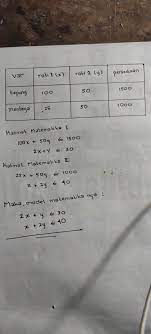 VJT roti 1 (x) roti 2 (y) persediaan
tepung 100 50 1500
mentega 25 50 1000
Kalimat Matematika I
100x + 50y ≤ 1500
2x + y ≤ 30
Kalimat Matematika II
25x + 50y ≤ 1000
x + 2y ≤ 40
Maka, model matematika nya :
2x + y ≤ 30
x + 2y ≤ 40